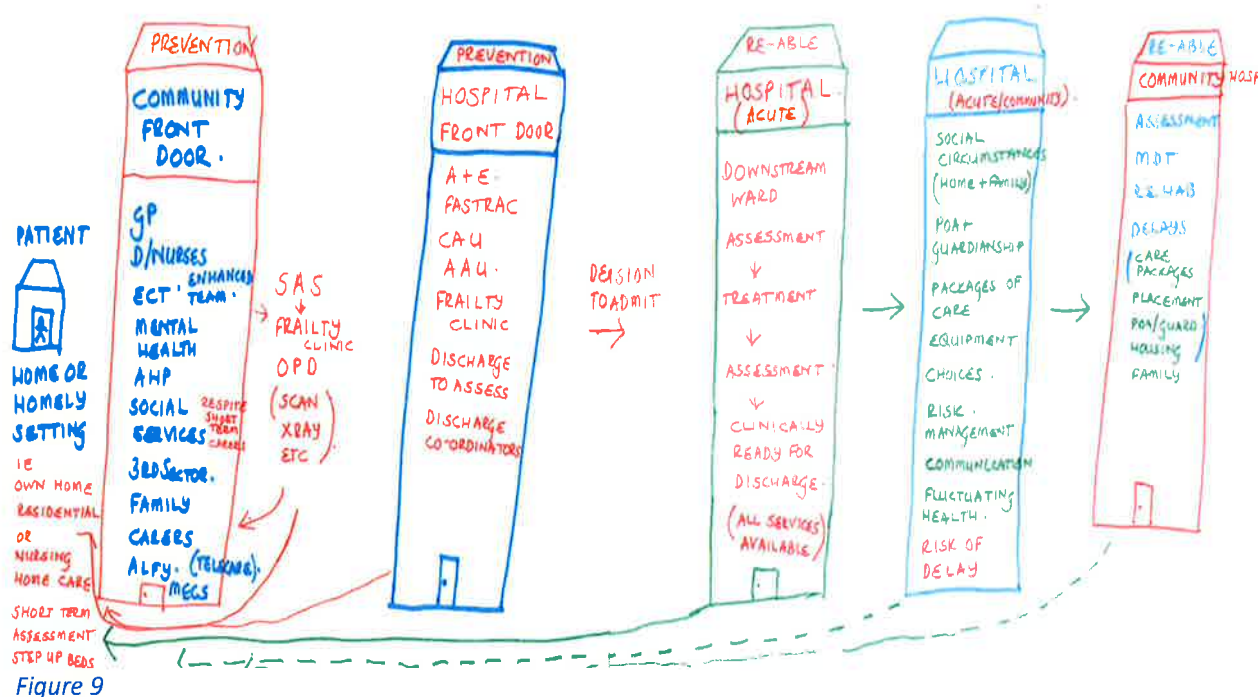 PATIENT
HOME OR
HOMELY
SETTING
IE
OWN HOME
RESIDENTIAL
OR
NURSING
HOME CARE
SHORT TERM
ASSESSMENT
STEP UP BEDS
PREVENTION
COMMUNITY
FRONT
DOOR.
GP
D/NURSES
ECT. ENHANCED
TEAM.
MENTAL
HEALTH
AHP
SOCIAL
SERVICES
RESPITE
SHORT
TERM
CAREERS
3RD SECTOR.
FAMILY
CARERS
ALFY. (TELECARE).
MECS
SAS
FRAILTY
CLINIC
OPD
(SCAN
XRAY
ETC)
PREVENTION
HOSPITAL
FRONT DOOR
A+E
FASTRAC
CAU
AAU.
FRAILTY
CLINIC
DISCHARGE
TO ASSESS
DISCHARGE
CO-ORDINATORS
DECISION
TO ADMIT
RE-ABLE
HOSPITAL.
(ACUTE)
DOWNSTREAM
WARD
ASSESSMENT
TREATMENT
ASSESSMENT.
CLINICALLY
READY FOR
DISCHARGE.
(ALL SERVICES
AVAILABLE)
HOSPITAL
(ACUTE/COMMUNITY).
SOCIAL
CIRCUMSTANCES
(HOME + FAMILY)
POA+
GUARDIANSHIP
PACKAGES OF
CARE
EQUIPMENT
CHOICES.
RISK.
MANAGEMENT
COMMUNICATION
FLUCTUATING
HEALTH.
RISK OF
DELAY
RE-ABLE
COMMUNITY HOSP
ASSESSMENT
MDT
REHAB
DELAYS
(CARE
PACKAGES
PLACEMENT
POA/GUARD
HOUSING)
FAMILY
Figure 9